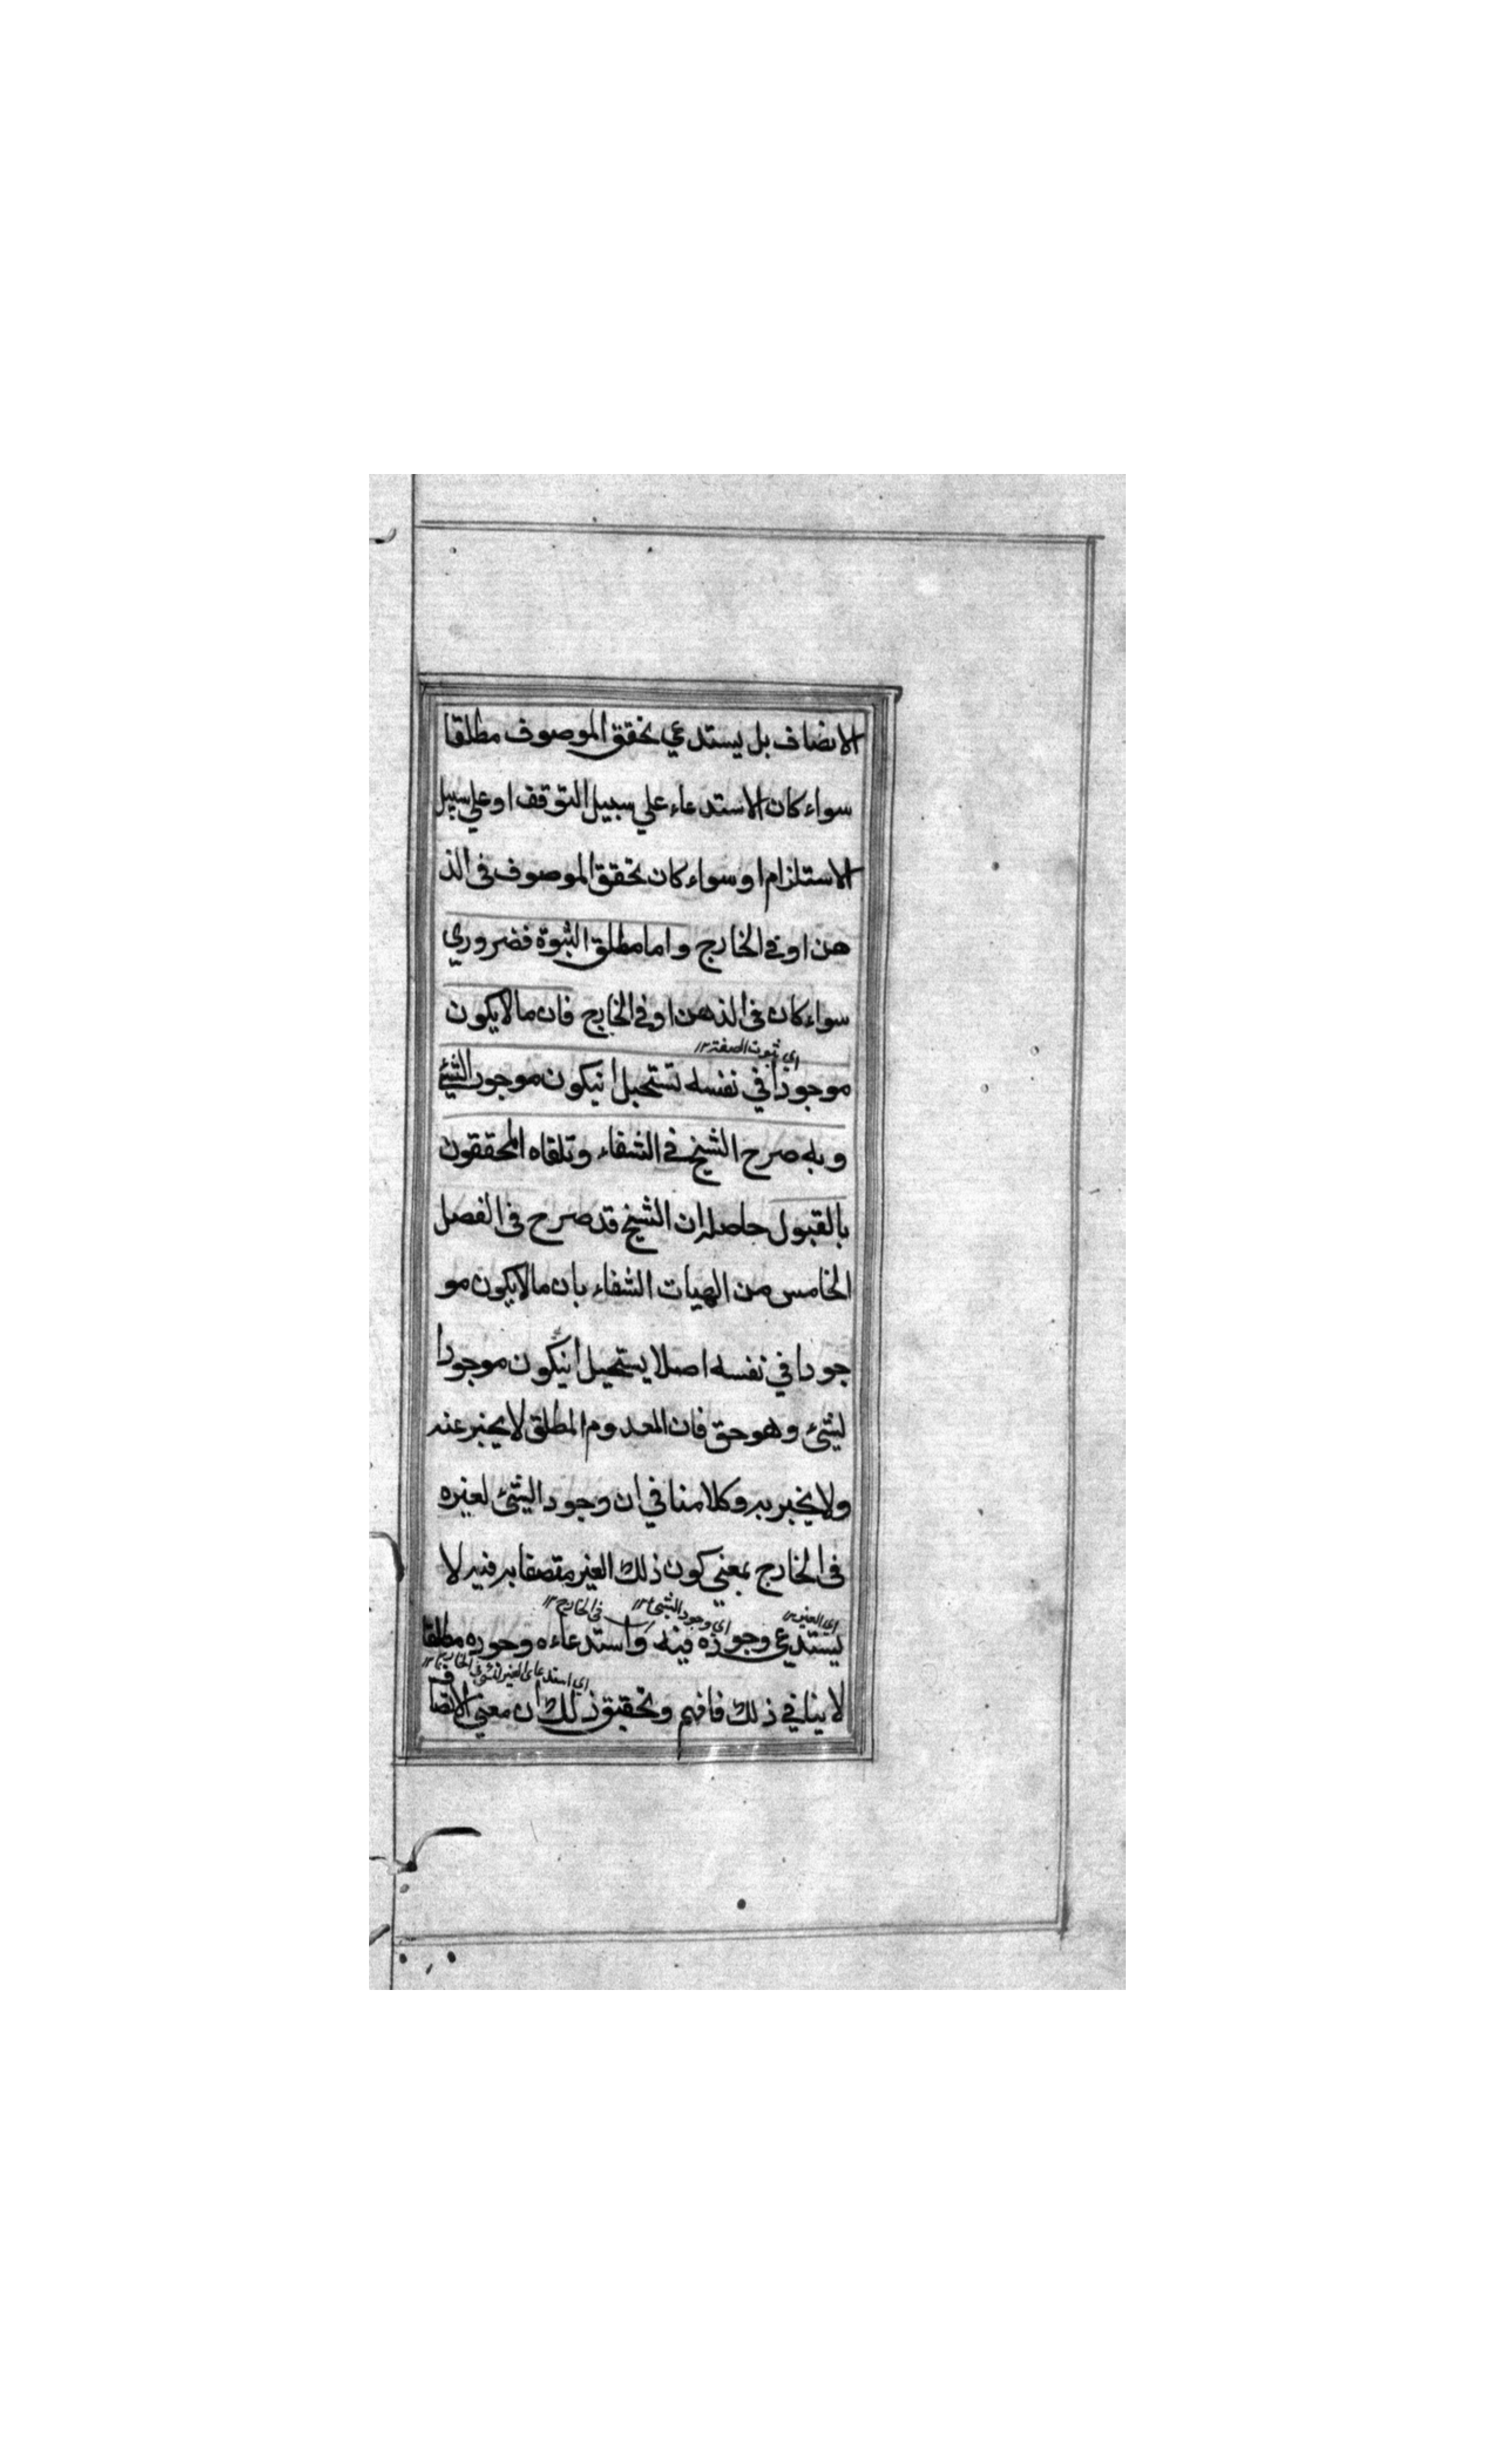 الاتضاف بل يستدعي تحقق الموصوف مطلقا
سواء كان الاستدعاء علي سبيل التوقف او علي سبيل
الاستلزام او سواء كان تحقق الموصوف في الذ
هن او في الخارج واما مطلق الثبوة فضروري
سواء كان في الذهن او في الخارج فان ما لا يكون
اي ثبوت الصفة ١٢
موجودا في نفسه تستحيل انيكون موجود الشيئ
وبه صرح الشيخ في الشفاء وتلقاه المحققون
بالقبول حاصله ان الشيخ قد صرح في الفصل
الخامس من الهيات الشفاء بان ما لا يكون مو
جودا في نفسه اصلا يستحيل انيكون موجودا
لشئ وهو حق فان المعدوم المطلق لا يخبر عنه
ولا يخبر به وكلامنا في ان وجود الشئ لغيره
في الخارج بمعني كون ذلك الغير متصفا به فيه لا
اي الغير ١٢ اي وجود الشئ ١٢ في الخارج ١٢
يستدعي وجوده فيه واستدعاءه وجوده مطلقا
اي استدعاء الغير للشئ في الخارج ١٢
لا ينافي ذلك فافهم وتحقيق ذلك ان معني الاتصاف